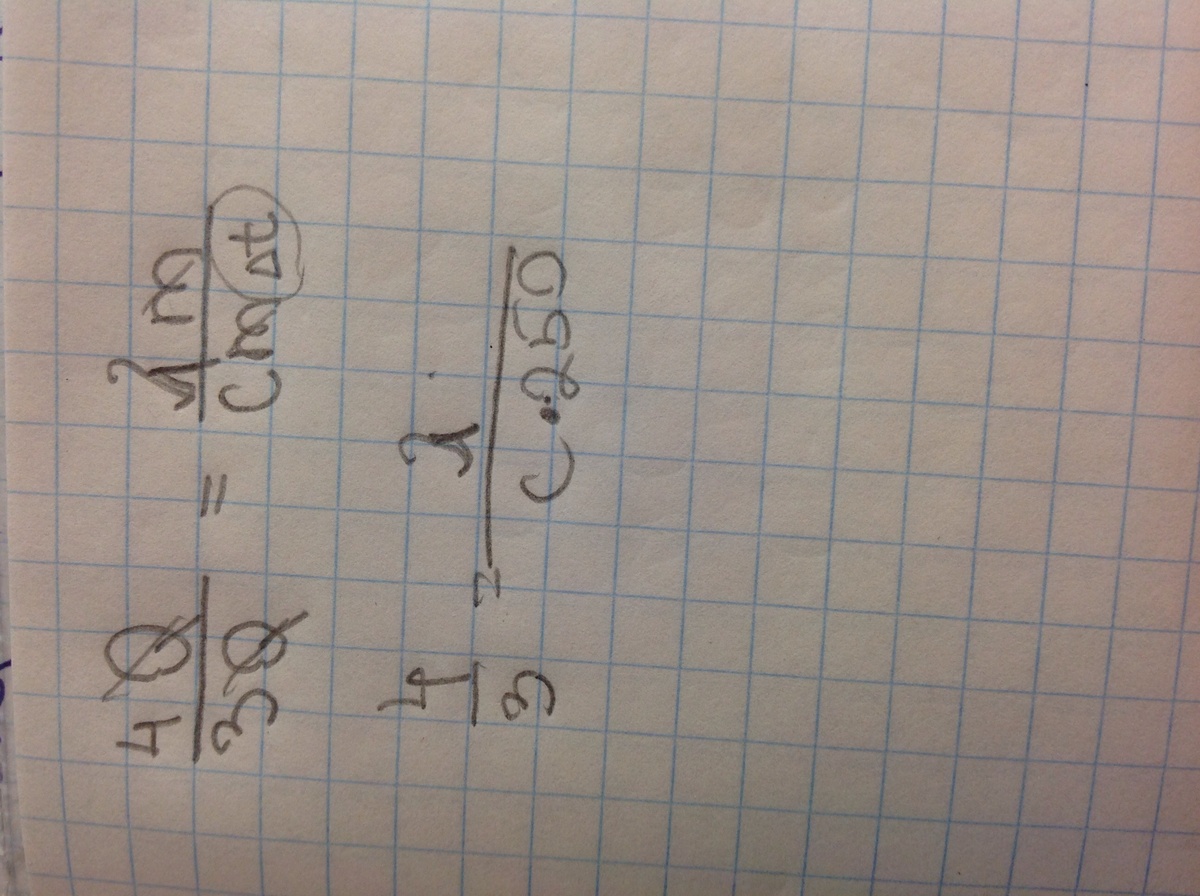 4Q/3Q = λm/cmΔt
4/3 = λ/c·250